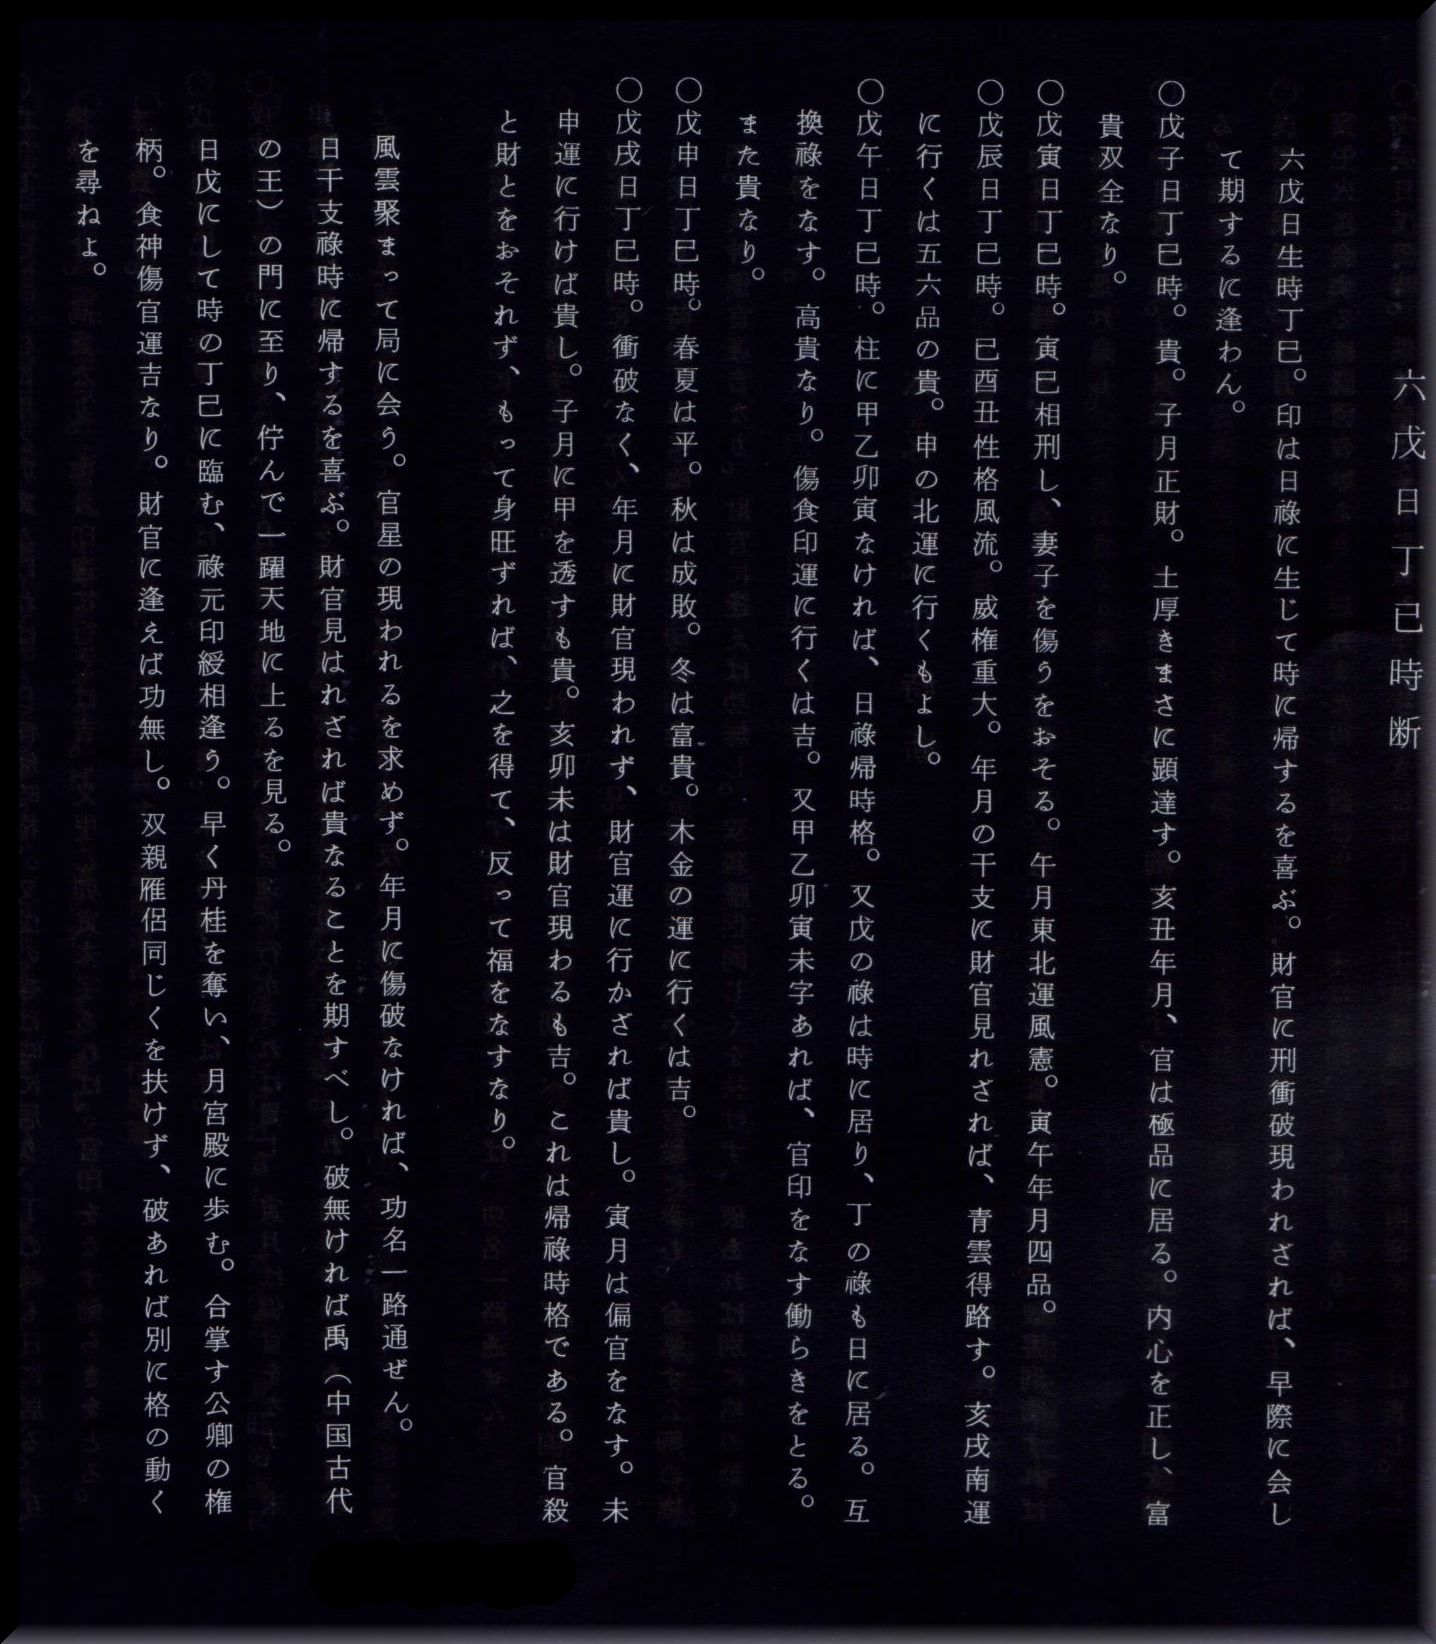 六戊日丁巳時断
六戊日生時丁巳。印は日祿に生じて時に帰するを喜ぶ。財官に刑衝破現われざれば、早際に会し
て期するに逢わん。
〇戊子日丁巳時。貴。子月正財。土厚きまさに顕達す。亥丑年月、官は極品に居る。内心を正し、富
貴双全なり。
〇戊寅日丁巳時。寅巳相刑し、妻子を傷うをおそる。午月東北運風憲。寅午年月四品。
〇戊辰日丁巳時。巳酉丑性格風流。威権重大。年月の干支に財官見れざれば、青雲得路す。亥戌南運
に行くは五六品の貴。申の北運に行くもよし。
〇戊午日丁巳時。柱に甲乙卯寅なければ、日祿帰時格。又戊の祿は時に居り、丁の祿も日に居る。互
換祿をなす。高貴なり。傷食印運に行くは吉。又甲乙卯寅未字あれば、官印をなす働らきをとる。
また貴なり。
〇戊申日丁巳時。春夏は平。秋は成敗。冬は富貴。木金の運に行くは吉。
〇戊戌日丁巳時。衝破なく、年月に財官現われず、財官運に行かざれば貴し。寅月は偏官をなす。未
申運に行けば貴し。子月に甲を透すも貴。亥卯未は財官現わるも吉。これは帰祿時格である。官殺
と財とをおそれず、もって身旺ずれば、之を得て、反って福をなすなり。
風雲聚まって局に会う。官星の現われるを求めず。年月に傷破なければ、功名一路通ぜん。
日干支祿時に帰するを喜ぶ。財官見はれざれば貴なることを期すべし。破無ければ禹（中国古代
の王）の門に至り、佇んで一躍天地に上るを見る。
日戊にして時の丁巳に臨む、祿元印綬相逢う。早く丹桂を奪い、月宮殿に歩む。合掌す公卿の権
柄。食神傷官運吉なり。財官に逢えば功無し。双親雁侶同じくを扶けず、破あれば別に格の動く
を尋ねよ。